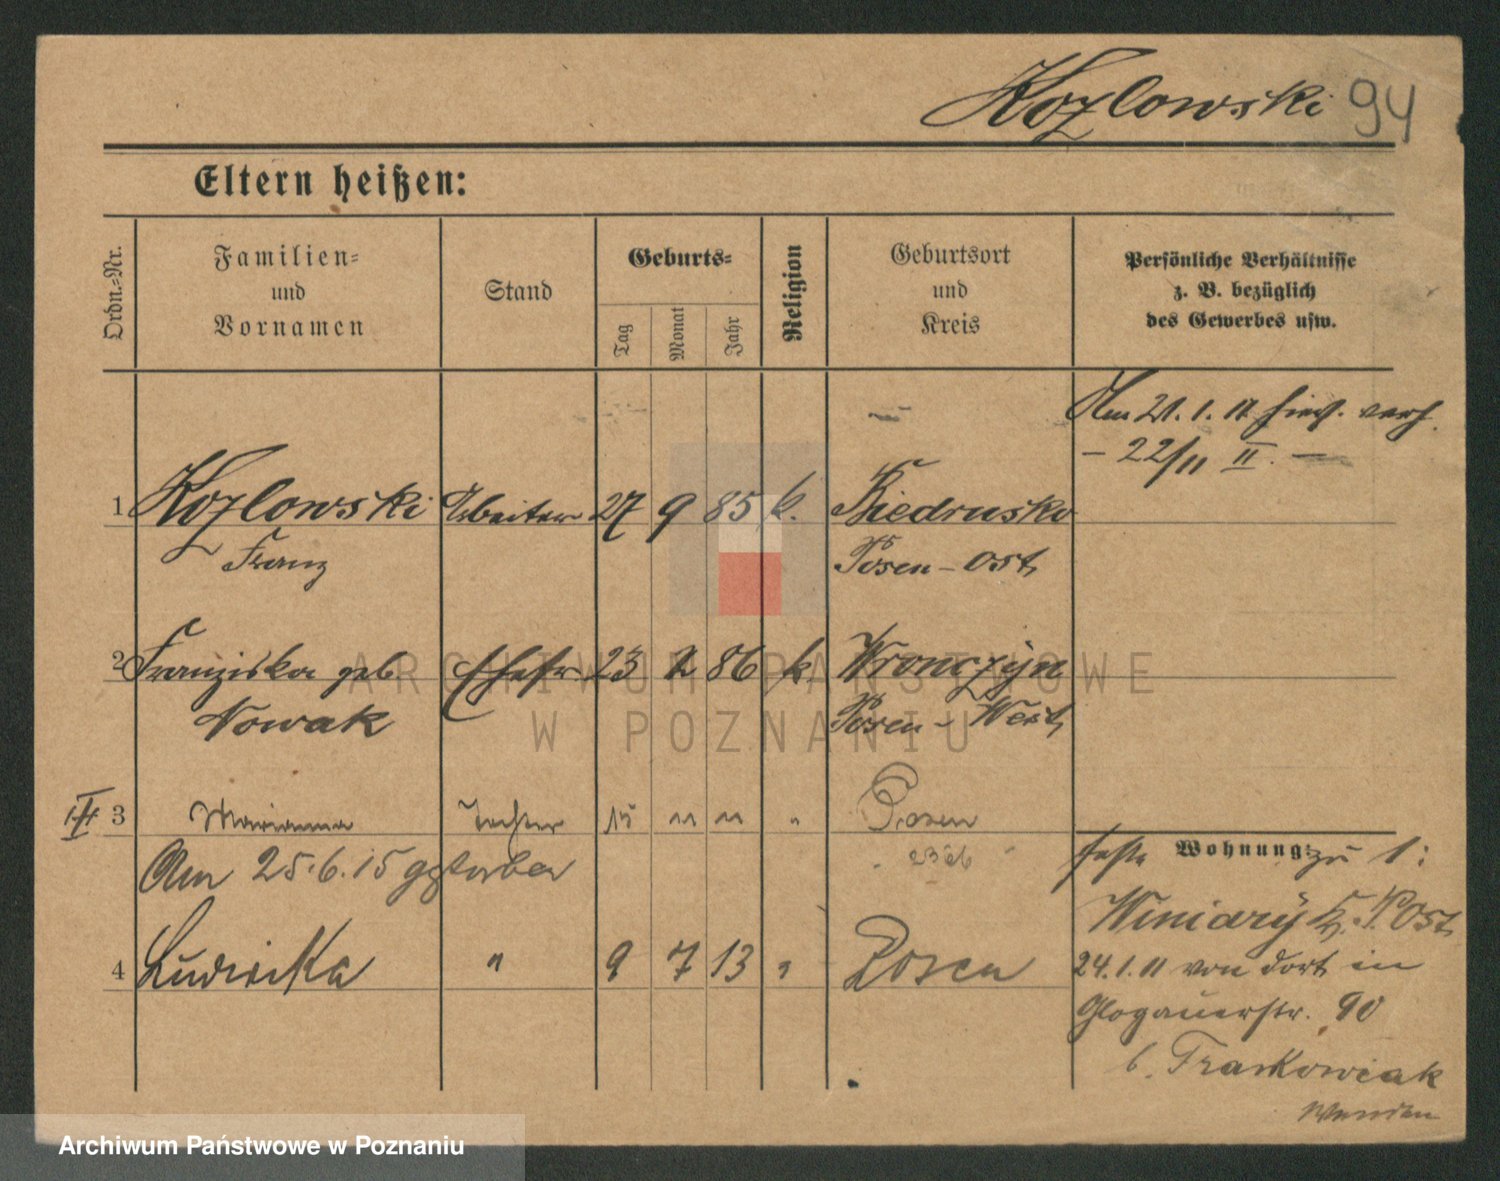 Kozlowski 94
Eltern heißen:
Ordn.-Nr.
Familien-
und
Vornamen
Stand
Geburts-
Tag
Monat
Jahr
Religion
Geburtsort
und
Kreis
Persönliche Verhältnisse
z. B. bezüglich
des Gewerbes usw.
Am 21. 1. 11 hier
– 22/11 II. –
1 Kozlowski Arbeiter 27 9 85 k. Biedrusko
Franz Posen – Ost
2 Franziska geb. Ehefr. 23 2 86 k. Wronczyn
Nowak Posen – West
3 Marianna Tochter 15 11 11 " Posen
Am 25.6.15 gestorben
4 Ludwika " 9 7 13 " Posen
feste Wohnung: zu 1:
Winiary K. P. Ost
24.1.11 von dort in
Glogauerstr. 90
b. Frankowiak
Wenden
ARCHIWUM PAŃSTWOWE
W POZNANIU
Archiwum Państwowe w Poznaniu